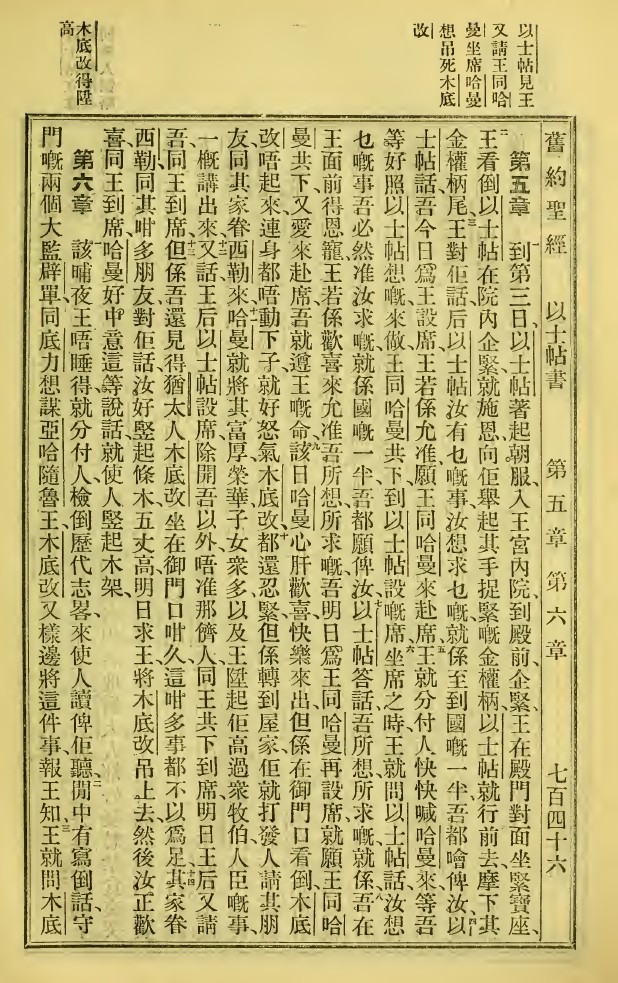 以士帖見王
又請王同哈
曼坐席哈曼
想吊死木底
改
木底改得陞
高
舊約聖經　以士帖書　第五章　第六章　七百四十六
第五章　一到第三日、以士帖著起朝服、入王宮內院、到殿前企緊、王在殿門對面坐緊寶座、
二王看倒以士帖在院內企緊、就施恩、向佢舉起其手捉緊嘅金權柄、以士帖就行前去、摩下其
金權柄尾、三王對佢話、后以士帖、汝有乜嘅事、汝想求乜嘅、就係至到國嘅一半、吾都噲俾汝、四以
士帖話、吾今日爲王設席、王若係允准、願王同哈曼來赴席、五王就分付人快快喊哈曼來、等吾
等好照以士帖想嘅來做、王同哈曼共下到以士帖設嘅席、六坐席之時、王就問以士帖話、汝想
乜嘅事、吾必然准汝、求嘅、就係國嘅一半、吾都願俾汝、七以士帖答話、吾所想所求嘅、就係八吾在
王面前得恩寵、王若係歡喜來允准吾所想所求嘅、吾明日爲王同哈曼再設席、就願王同哈
曼共下、又愛來赴席、吾就遵王嘅命、九該日哈曼心肝歡喜快樂來出、但係在御門口看倒木底
改唔起來、連身都唔動下子、就好怒氣木底改、十都還忍緊、但係轉到屋家、佢就打發人請其朋
友、同其家眷西勒來、十一哈曼就將其富厚榮華、子女衆多、以及王陞起佢高過衆牧伯人臣嘅事、
一概講出來、十二又話、王后以士帖設席、除開吾以外、唔准那儕人同王共下到席、明日王后又請
吾同王到席、十三但係吾還見得猶太人木底改坐在御門口咁久、這咁多事都不以爲足、十四其家眷
西勒、同其咁多朋友、對佢話、汝好竪起條木五丈高、明日求王將木底改吊上去、然後汝正歡
喜同王到席、哈曼好中意這等說話、就使人竪起木架、
第六章　一該晡夜王唔睡得、就分付人檢倒歷代志畧來、使人讀俾佢聽、二閒中有寫倒話、守
門嘅兩個大監、辟單同底力、想謀亞哈隨魯王、木底改又樣邊將這件事報王知、三王就問木底